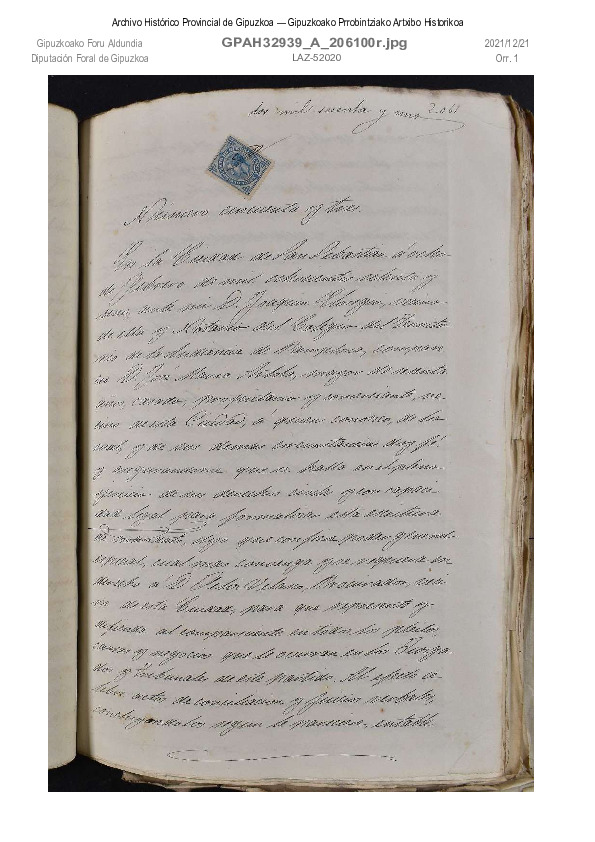 Archivo Histórico Provincial de Gipuzkoa — Gipuzkoako Prrobintziako Artxibo Historikoa
Gipuzkoako Foru Aldundia
Diputación Foral de Gipuzkoa
GPAH32939_A_206100r.jpg
LAZ-52020
2021/12/21
Orr. 1
dos mil sesenta y uno 2.061
Número cincuenta y tres.
En la Ciudad de San Sebastian á ocho
de Febrero de mil ochocientos setenta y
ante mi D. Joaquin Elosegui, vecino
de ella y Notario del Colegio del Territo-
rio de la Audiencia de Pamplona, compare-
ció D. José Maria mayor de
años, casado, propietario y comerciante, ve-
cino de esta Ciudad, á quien conozco, de lo
cual y de sus demas circunstancias doy fé
y asegurandome que se halla en el pleno
de sus derechos civiles y con capaci-
dad legal para formalizar esta escritura
de dijo: que confiere poder general
especial, cual mas convenga y se requiera en
derecho á D. Procurador, veci-
no de esta Ciudad, para que represente y
defienda al compareciente en todos los pleitos,
causas y negocios que le ocurran en los Juzga-
dos y tribunales de este partido. Al efecto ce-
lebre actos de conciliacion y juicios verbales,
segun le parezca, entable